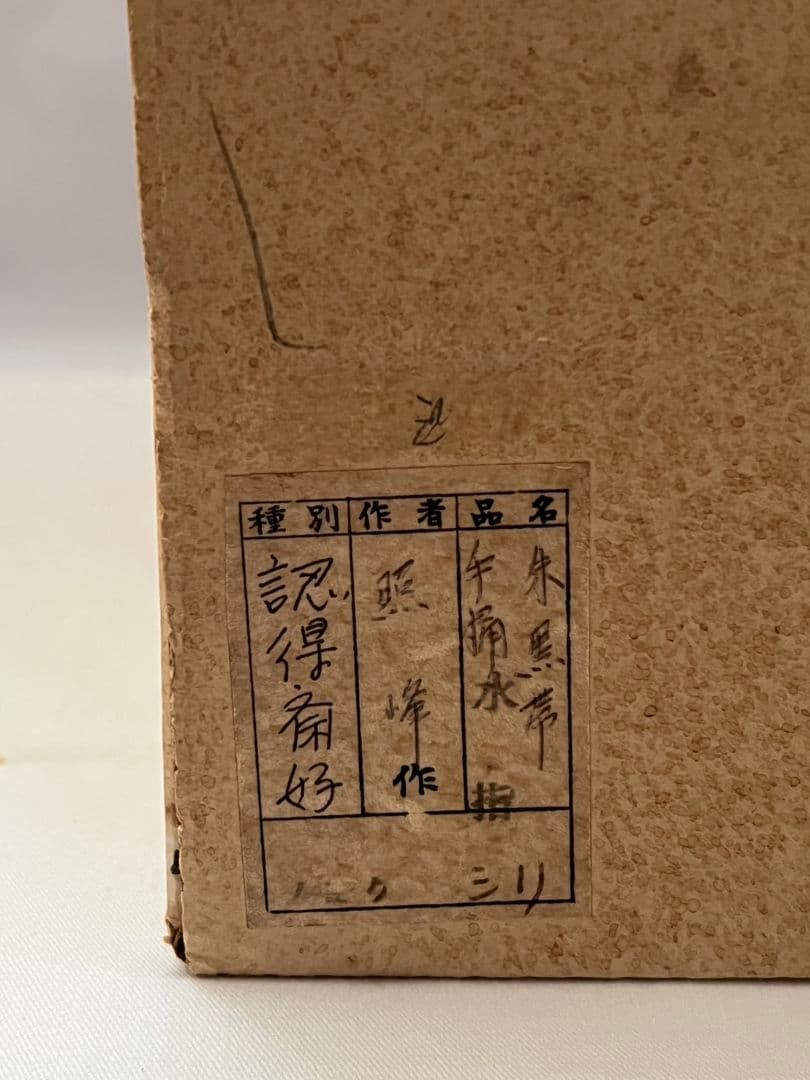 種別 作者 品名
朱黒帯
手桶水指
照峰作
認得斎好